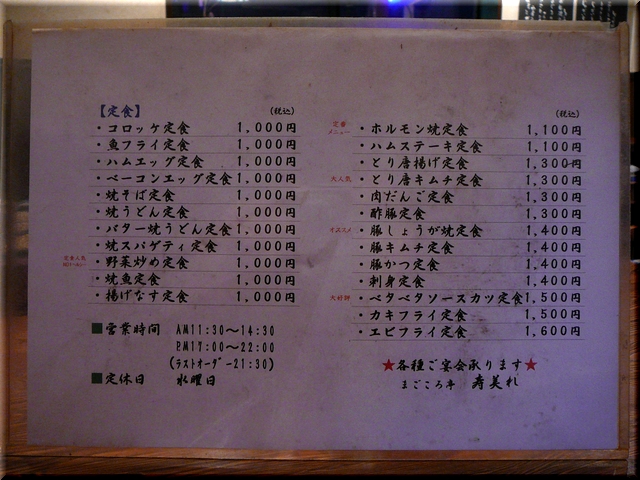 【定食】 (税込)
・コロッケ定食 1,000円
・魚フライ定食 1,000円
・ハムエッグ定食 1,000円
・ベーコンエッグ定食 1,000円
・焼そば定食 1,000円
・焼うどん定食 1,000円
・バター焼うどん定食 1,000円
・焼スパゲティ定食 1,000円
・野菜炒め定食 1,000円
・焼魚定食 1,000円
・揚げなす定食 1,000円
■営業時間 AM11:30〜14:30
PM17:00〜22:00
(ラストオーダー21:30)
■定休日 水曜日
(税込)
定番
メニュー
・ホルモン焼定食 1,100円
・ハムステーキ定食 1,100円
・とり唐揚げ定食 1,300円
大人気 ・とり唐キムチ定食 1,300円
・肉だんご定食 1,300円
・酢豚定食 1,300円
オススメ ・豚しょうが焼定食 1,400円
・豚キムチ定食 1,400円
・豚かつ定食 1,400円
・刺身定食 1,400円
大好評 ・ベタベタソースカツ定食 1,500円
・カキフライ定食 1,500円
・エビフライ定食 1,600円
★各種ご宴会承ります★
まごころ亭 寿美礼